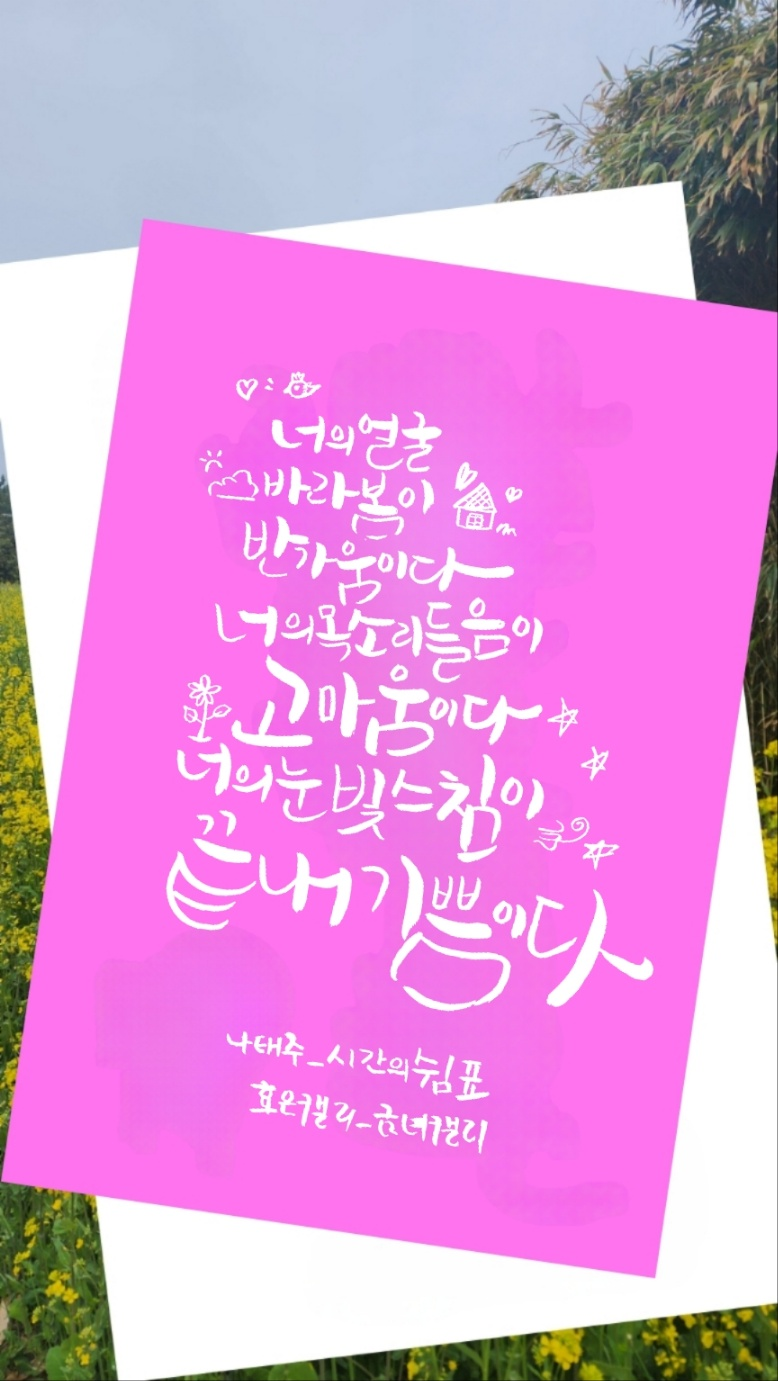 너의얼굴
바라봄이
반가움이다
너의목소리들음이
고마움이다
너의눈빛스침이
끝내기쁨이다
나태주_시간의쉼표
효온캘리_금녀캘리